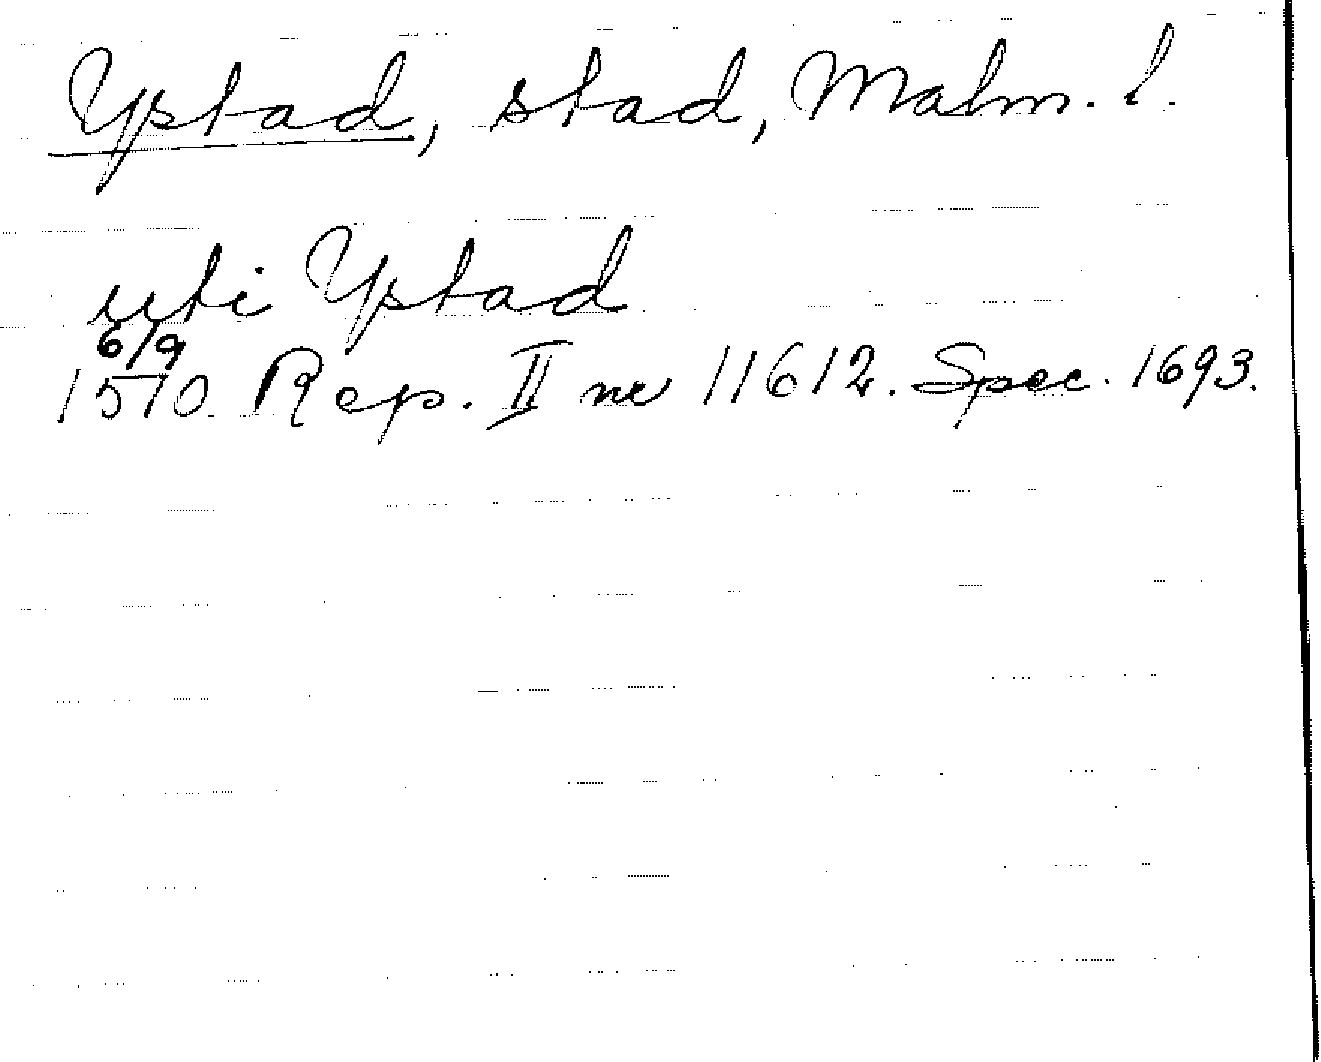 Ystad, stad, Malm. l.
uti Ystad
6/9
1510 Rep. II nr 11612. Spec. 1693.